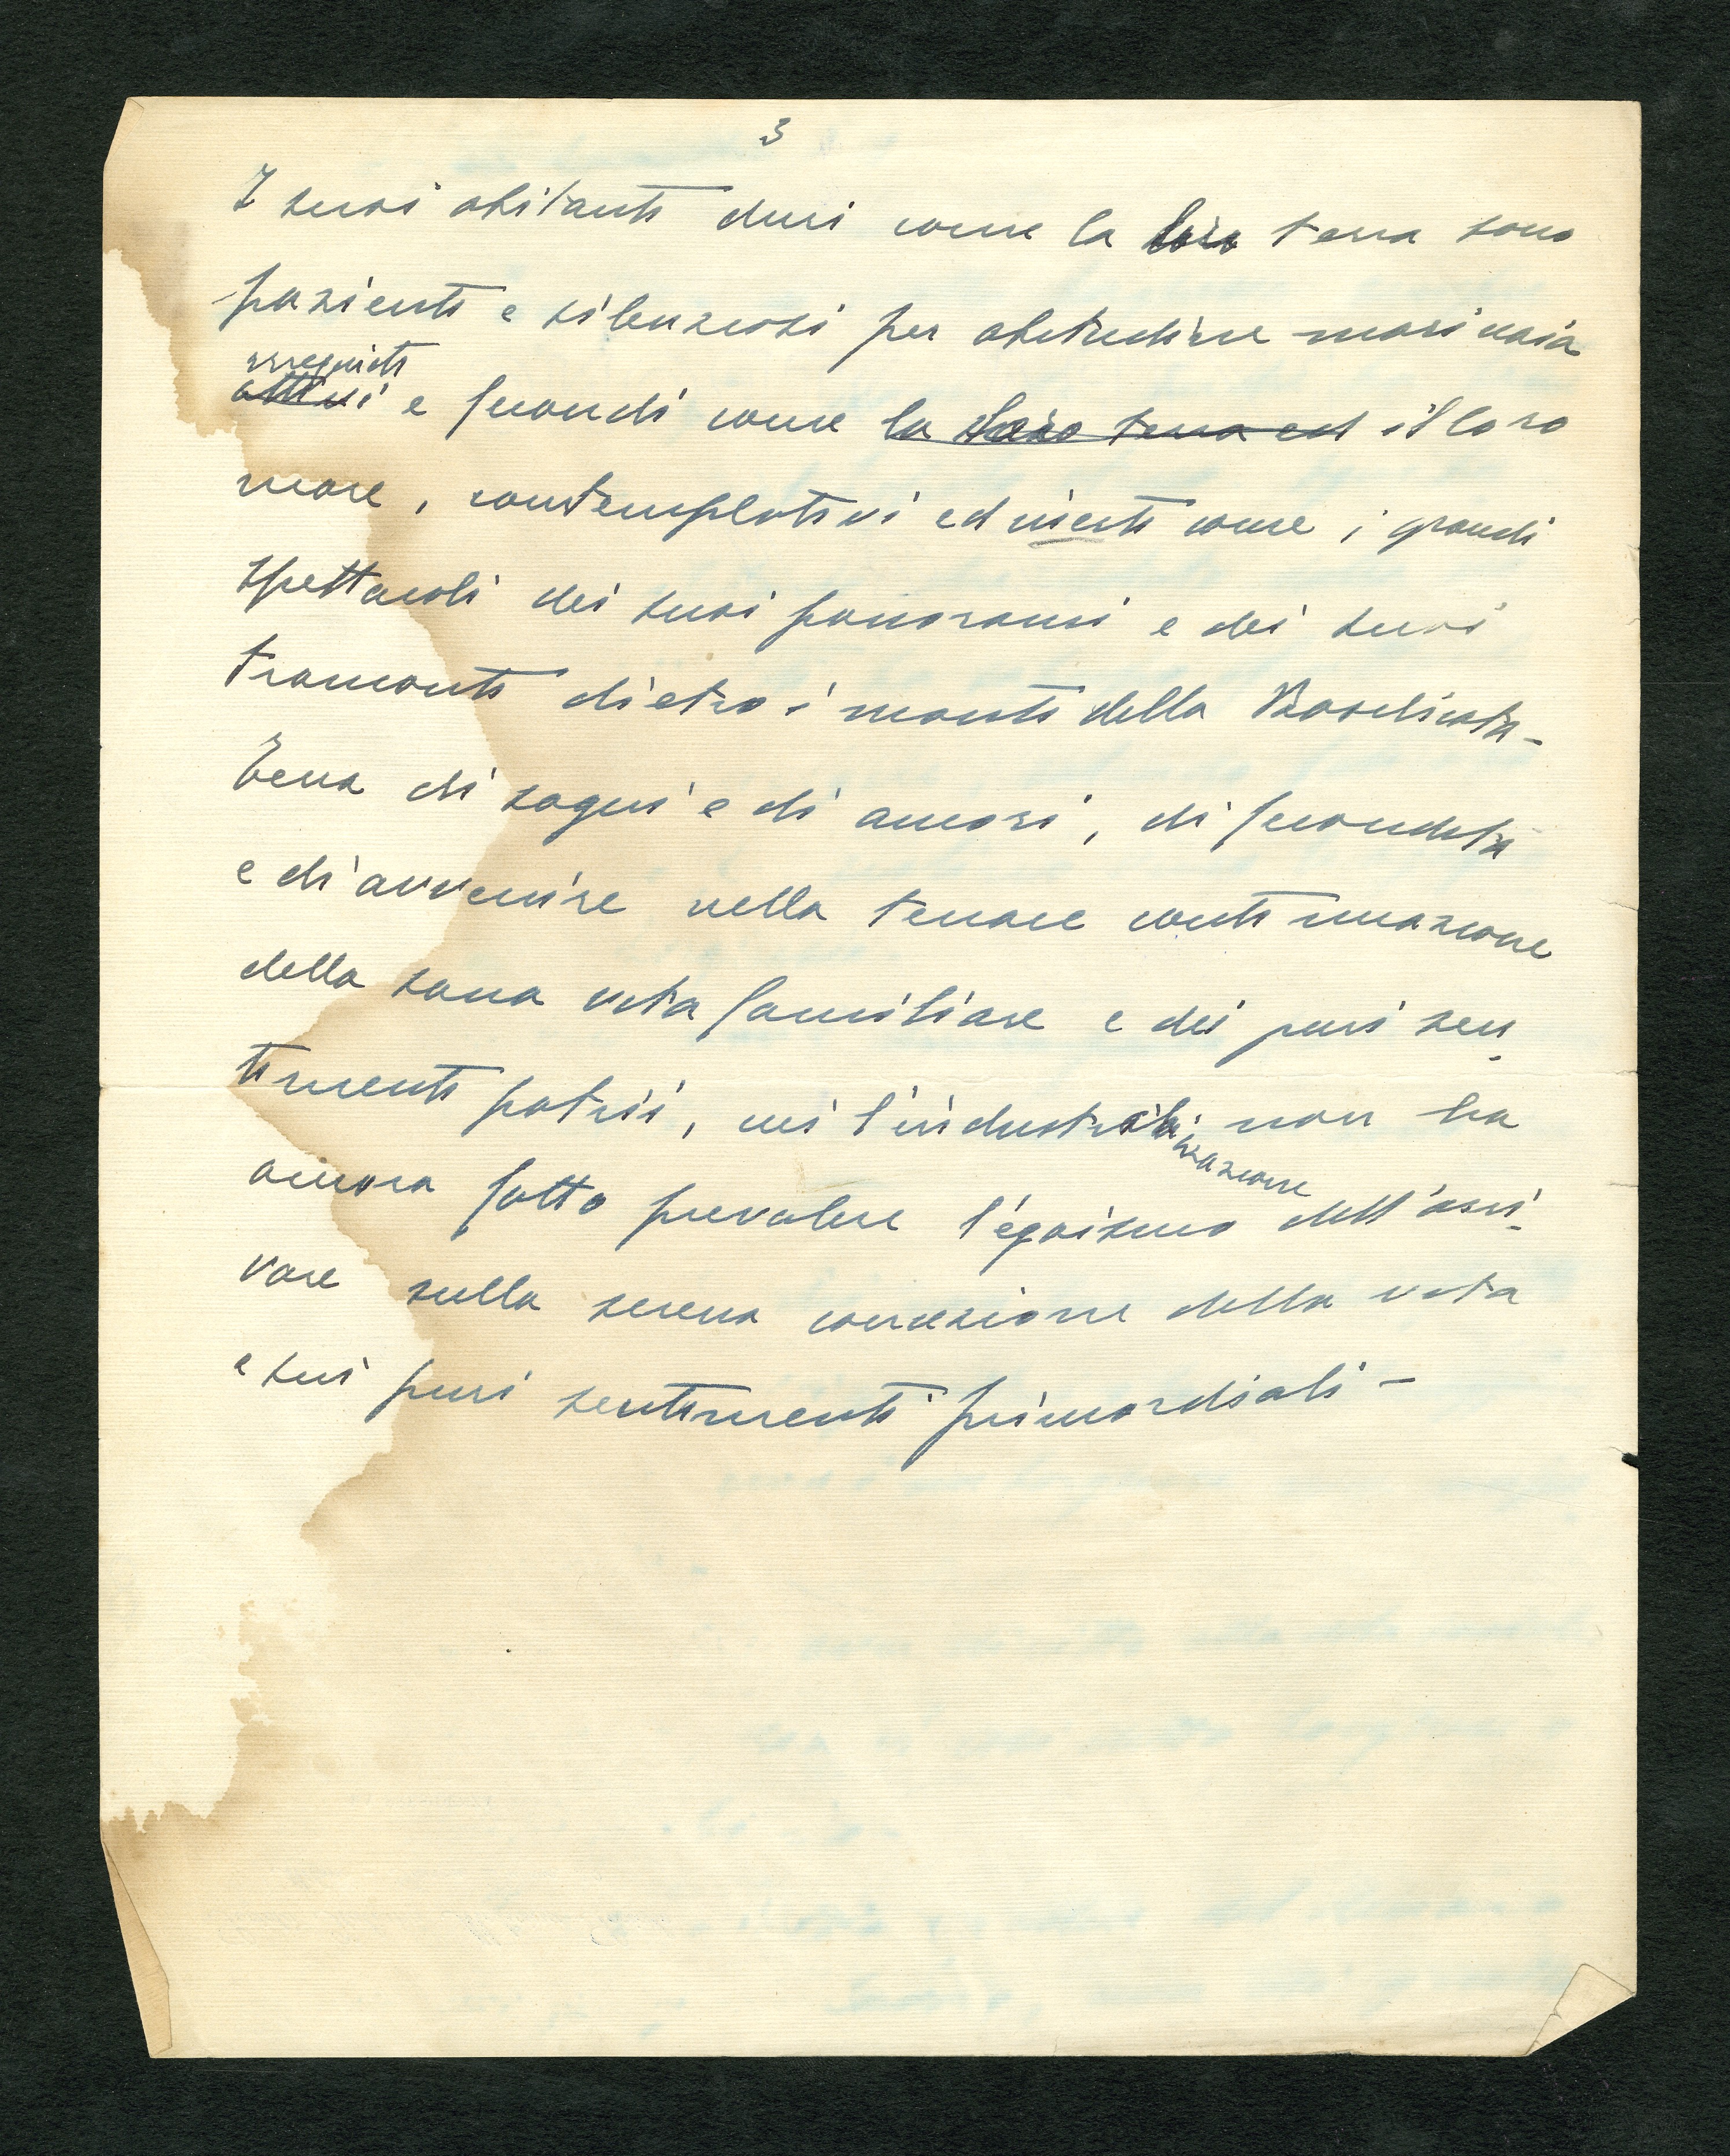 3
I suoi abitanti duri come la loro terra sono
pazienti e silenziosi per abitudine marinaia
irrequieti
attivi e fecondi come la loro terra ed il loro
mare, contemplativi ed mesti come i grandi
spettacoli dei suoi panorami e dei suoi
tramonti dietro i monti della Basilicata -
Terra di sogni e di amori, di fecondità
e di avvenire nella tenace continuazione
della sana vita familiare e dei puri sen
timenti patrii, cui l'industrializ non ha
zazione
ancora fatto prevalere l'egoismo dell'arri-
vare sulla serena concezione della vita
e sui puri sentimenti primordiali -